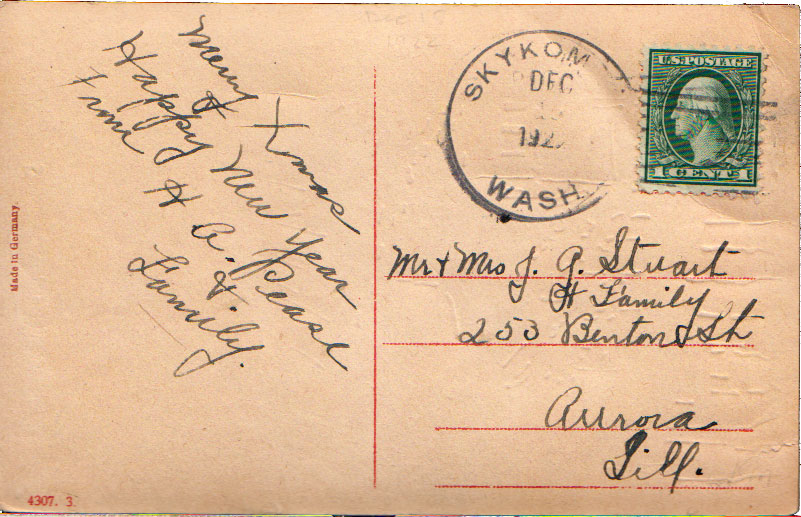 Merry Xmas
&
Happy New Year
From H A. Pease
& Family.
SKYKOM
DEC
192
WASH
U.S. POSTAGE
1 CENT
Mr & Mrs J. A. Stuart
& Family
253 Benton St
Aurora
Ill.
Made in Germany.
4307. 3.